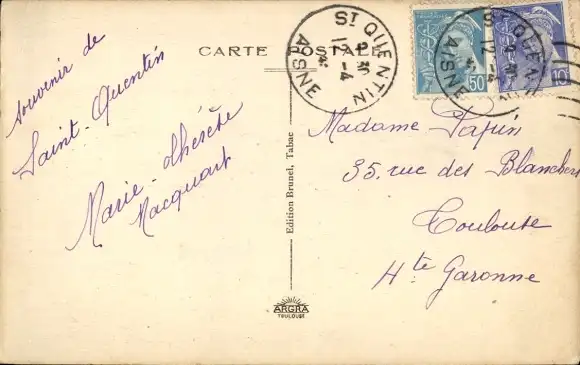 CARTE POSTALE
Souvenir de
Saint-Quentin
Marie-thérèse
Macquart
Edition Brunel, Tabac
ARGRA
TOULOUSE
ST QUENTIN
AISNE
ST QUENTIN
AISNE
50
10
Madame Papin
35, rue des Blanchers
Toulouse
Hte Garonne